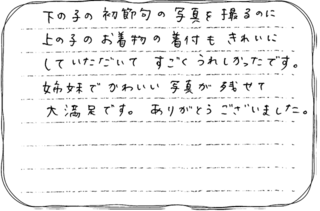 下の子の初節句の写真を撮るのに
上の子のお着物の着付もきれいに
していただいて すごくうれしかったです。
姉妹でかわいい写真が残せて
大満足です。ありがとうございました。